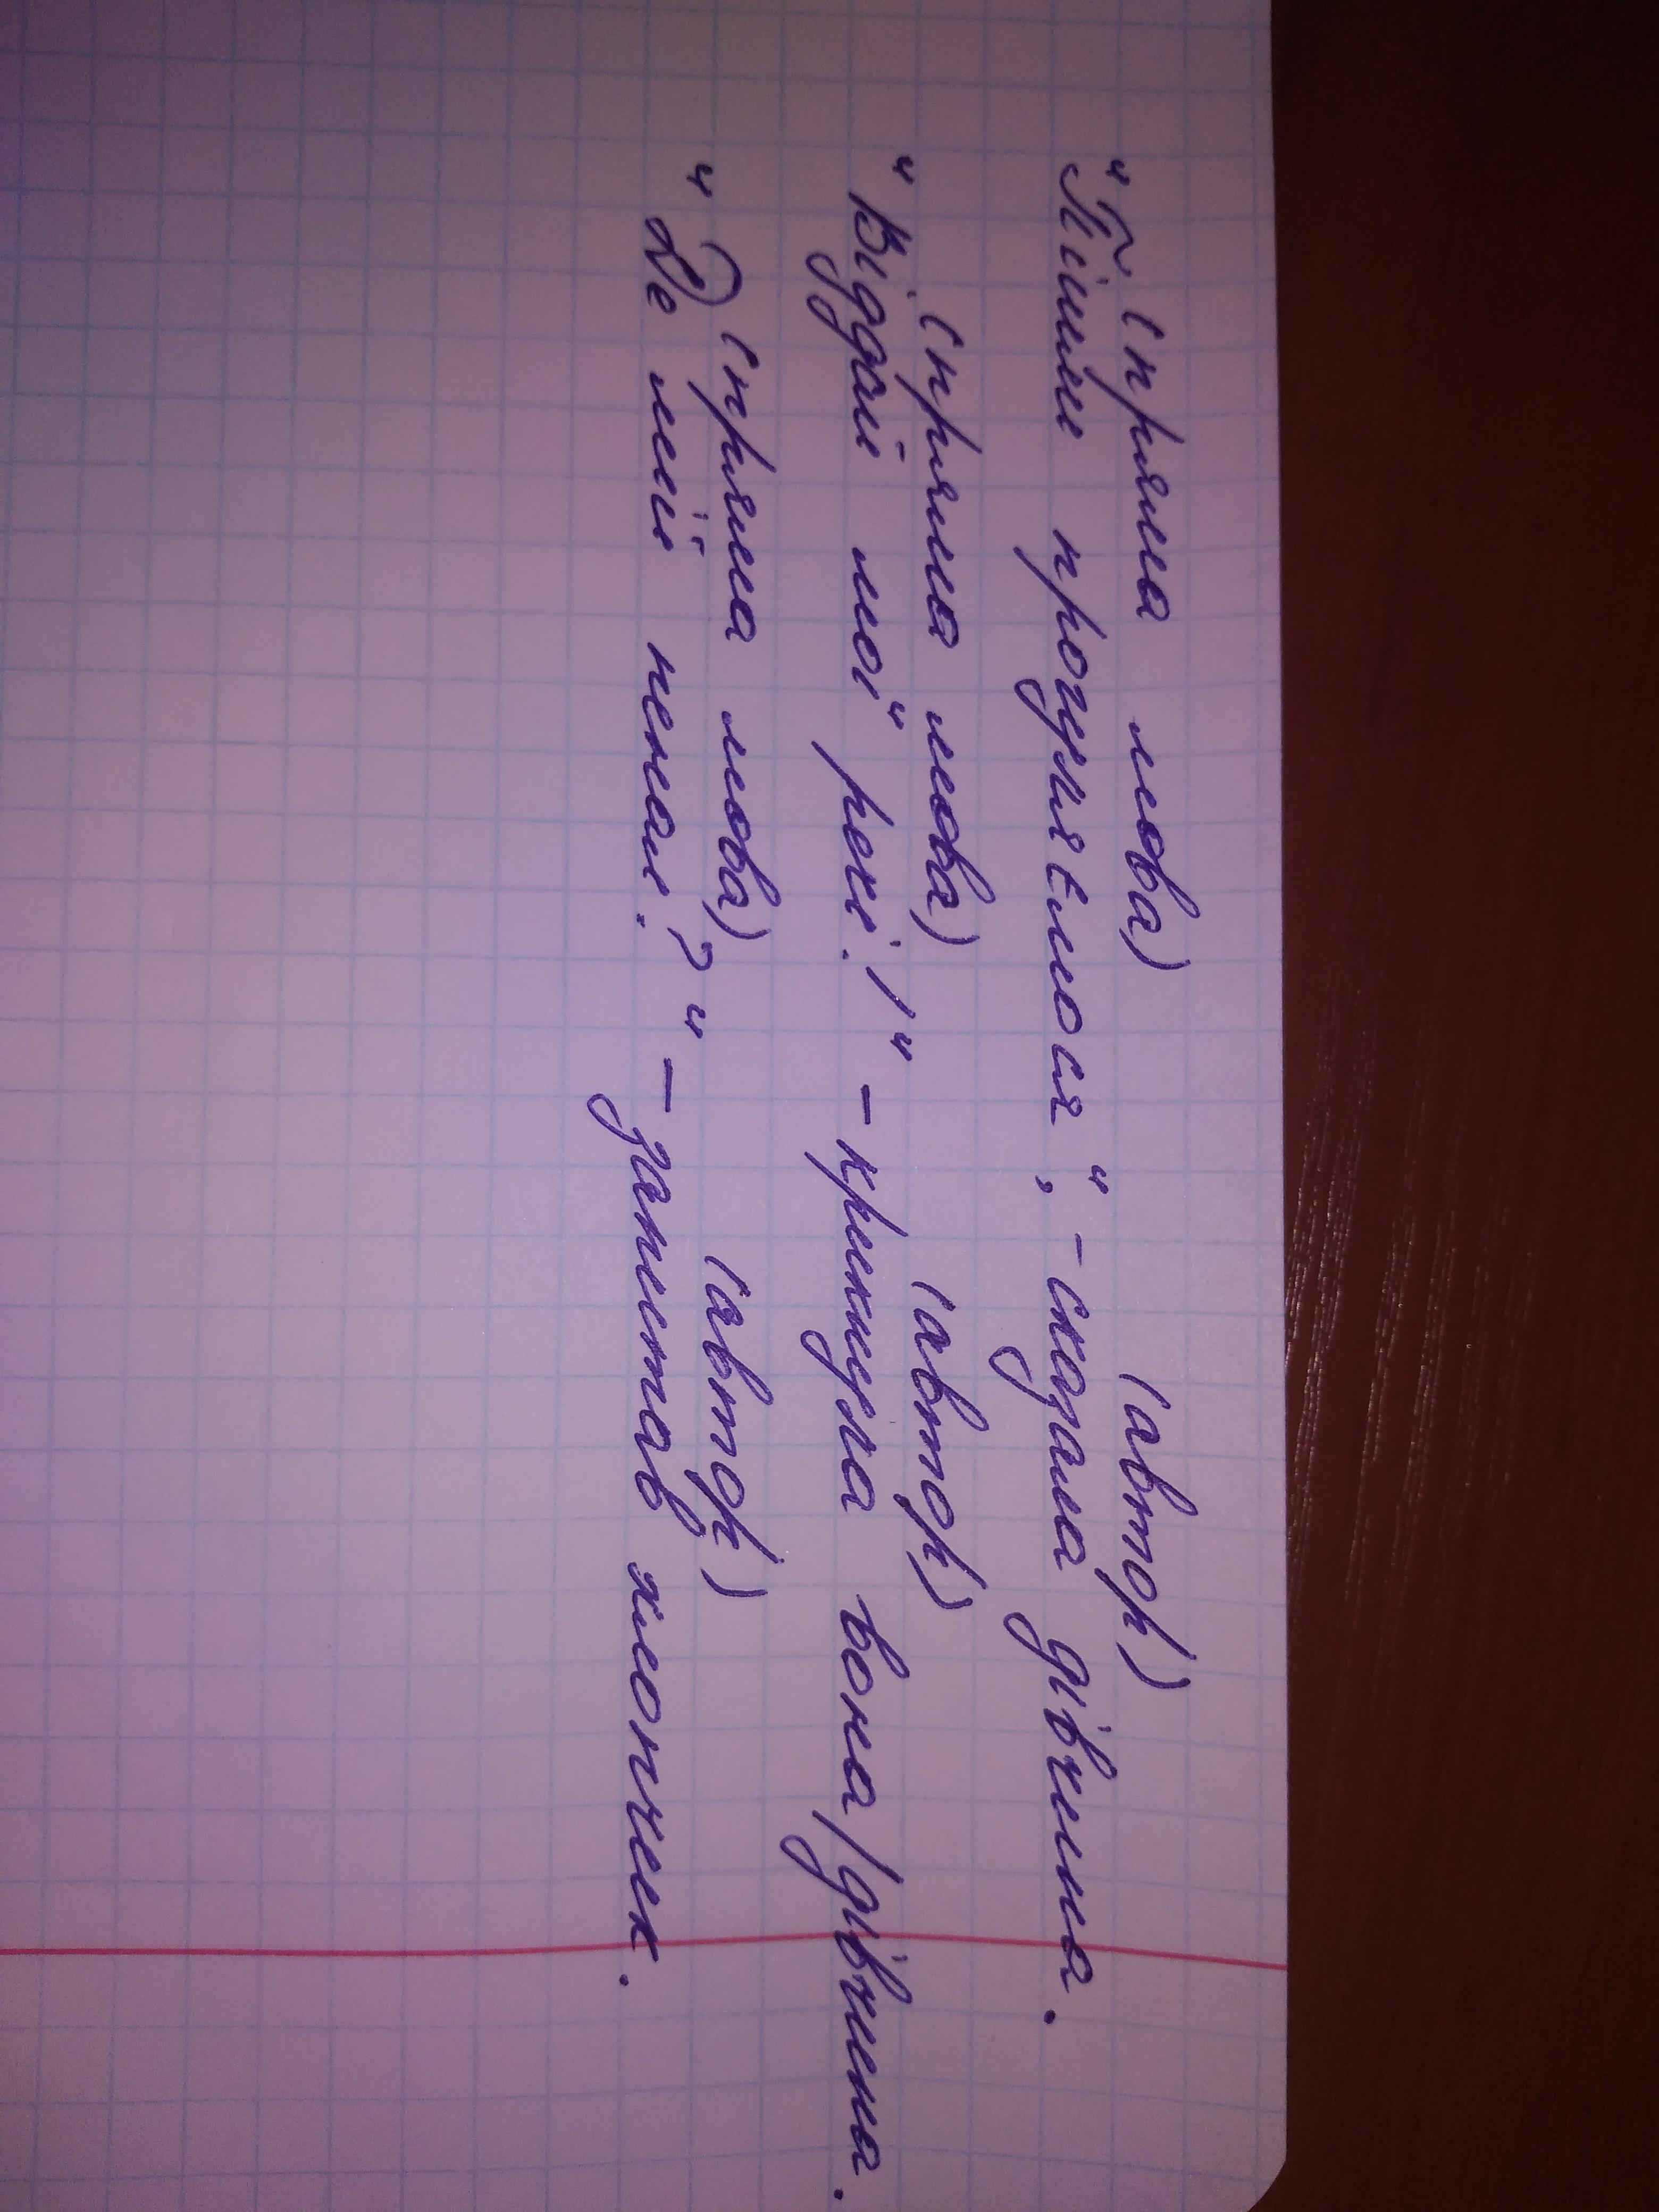 (пряма мова) (автор)
"Пішли прогуляємося", - сказала дівчина.
(пряма мова) (автор)
"Віддай мої речі!" - крикнула вона/дівчина.
(пряма мова) (автор)
"Де мій пенал?" - запитав хлопчик.